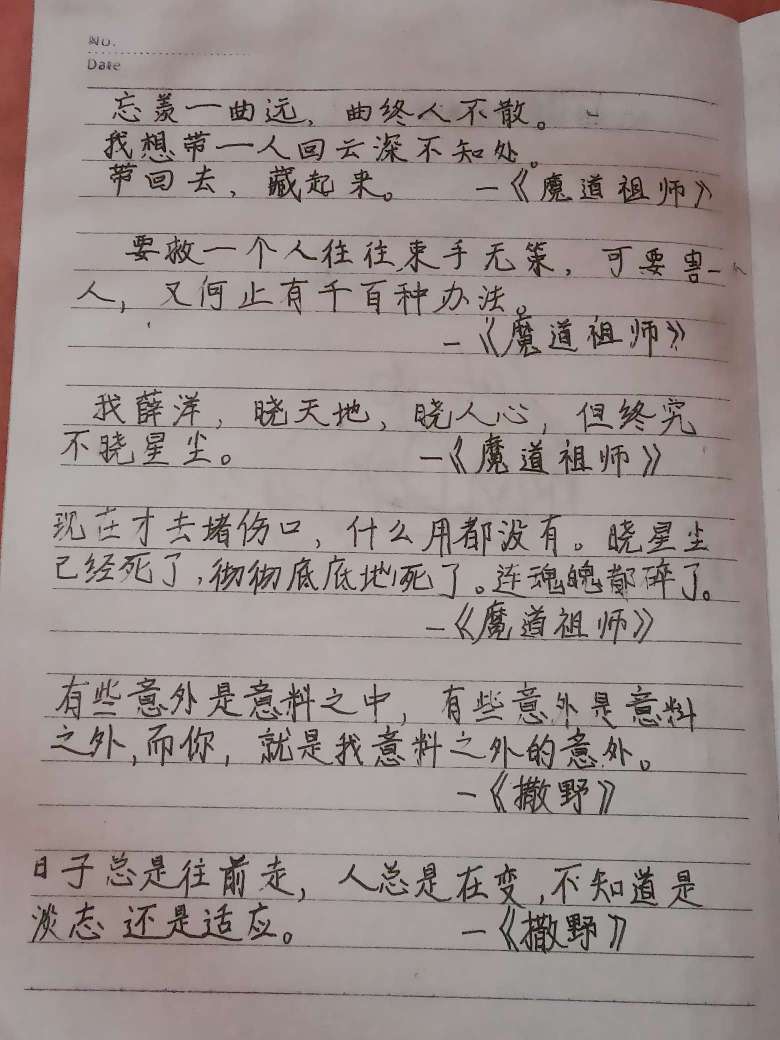 No.
Date
忘羡一曲远，曲终人不散。
我想带一人回云深不知处。
带回去，藏起来。 —《魔道祖师》
要救一个人往往束手无策，可要害一
人，又何止有千百种办法。
—《魔道祖师》
我薛洋，晓天地，晓人心，但终究
不晓星尘。 —《魔道祖师》
现在才去堵伤口，什么用都没有。晓星尘
已经死了，彻彻底底地死了。连魂魄都碎了。
—《魔道祖师》
有些意外是意料之中，有些意外是意料
之外，而你，就是我意料之外的意外。
—《撒野》
日子总是往前走，人总是在变，不知道是
淡志还是适应。 —《撒野》